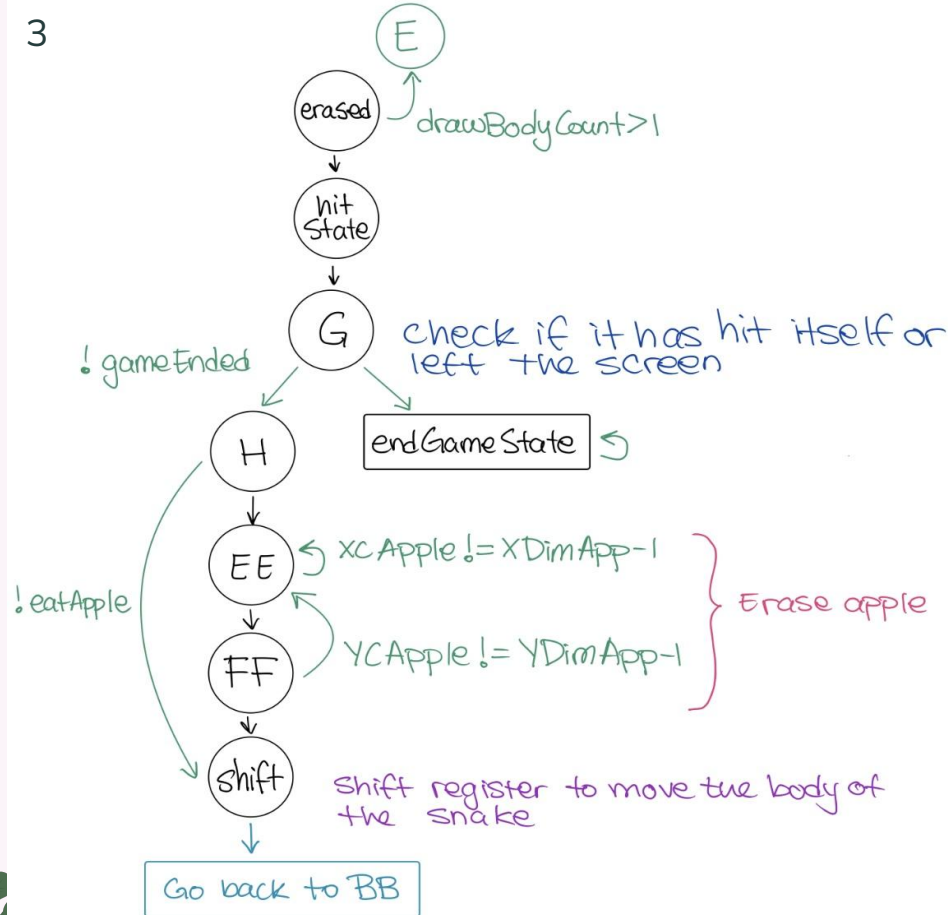 3
E
erased
drawBodyCount>1
hit
State
G
check if it has hit itself or
left the screen
! gameEnded
H
endGameState
EE
XCApple != XDimApp-1
! eatApple
Erase apple
FF
YCApple != YDimApp-1
shift
Shift register to move the body of
the snake
Go back to BB